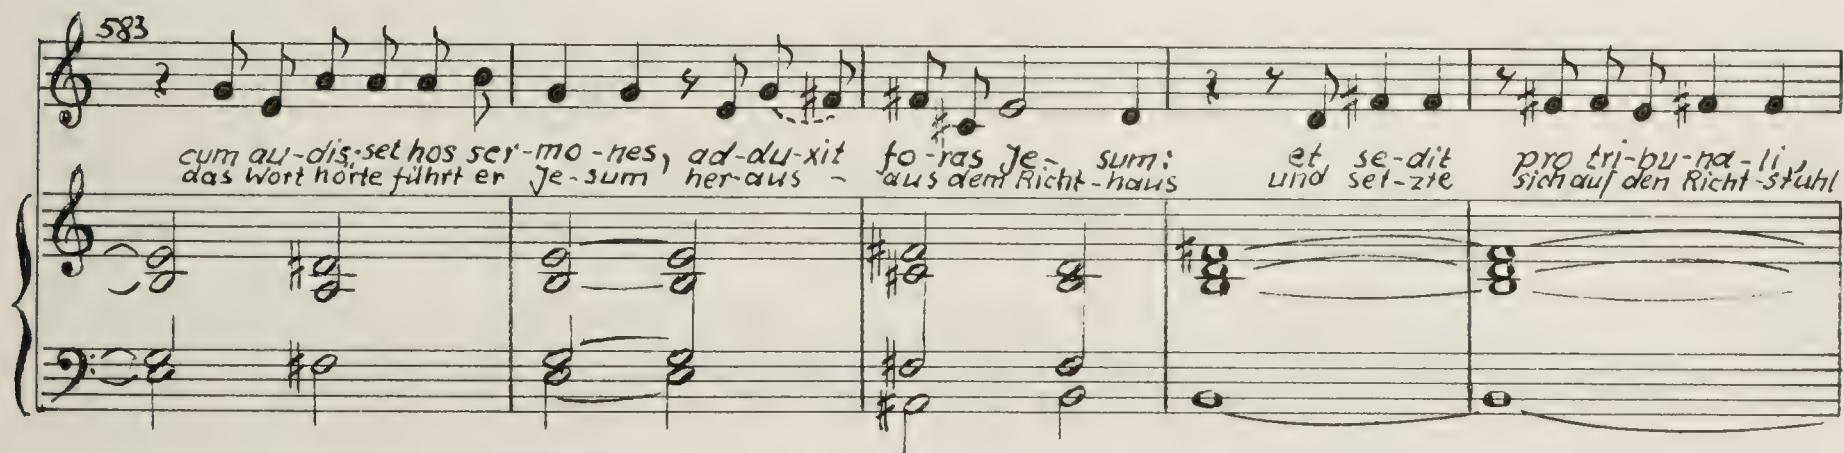 583
cum au-dis-set hos ser-mo-nes, ad-du-xit fo-ras Je-sum: et se-dit pro tri-bu-na-li,
das Wort hörte führt er Je-sum her-aus- aus dem Richt-haus und set-zte sich auf den Richt-stuhl